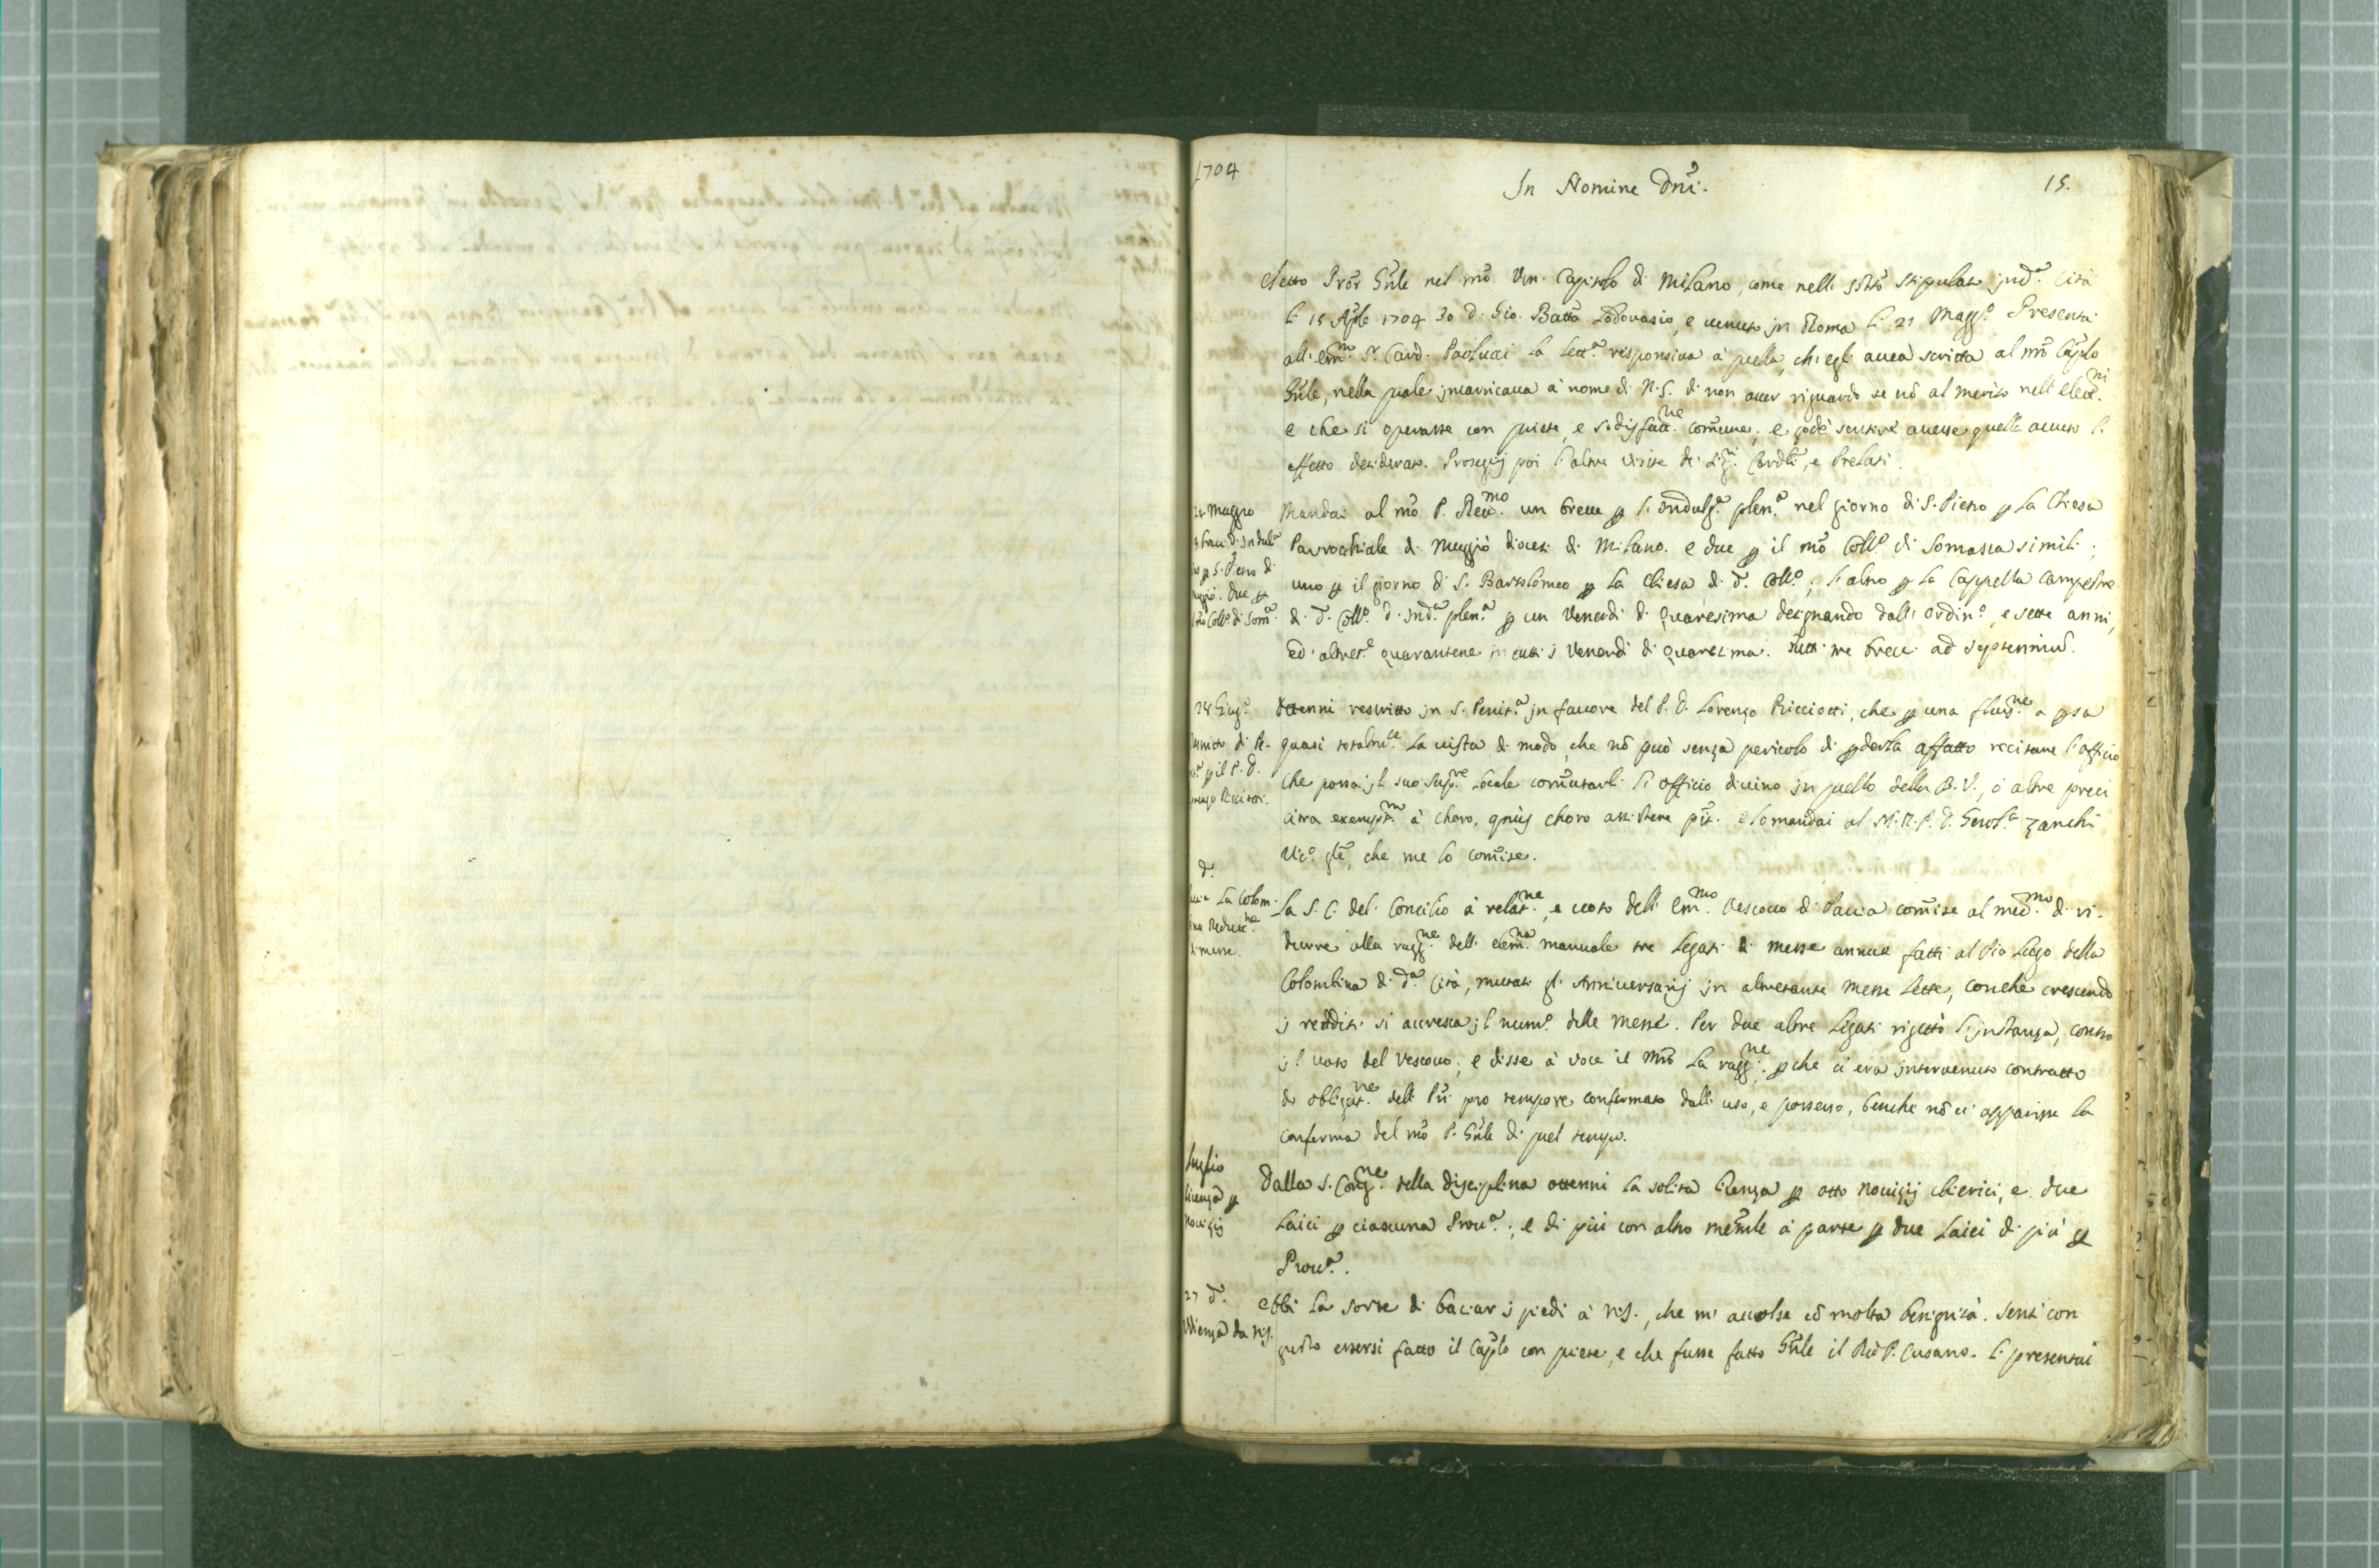 1704
In Nomine Dnĩ.
15.
Eletto Pror Gnĩle nel nrõ Ven. Capitolo di Milano, come nelli stipulato Città
li 15 Aple 1704 Io D. Gio. Batta Lodovasio, e venuto in Roma li 21 Magg.º Presentai
all' Em.mo S.r Card. Paolucci la lett.ª responsiva à quella, ch'egli avea scritta al nrõ Caplo
Gnle, nella quale incaricava à nome di N.S. di non aver riguardo se nõ al merito nell' elez.ni
e che si operasse con quiete, e sodisfatt.ne comune, e godè sentire avesse quella avuto l'
effetto desiderato. Proseguij poi l'altre visite de Sig.ri Cardli, e Prelati.
24 Maggio
3 brevi d'Indul.ª
p S. Pietro di
Due p
Coll.º di Som.ª
Mandai al nrõ P. Rev.mo un breve p l'Indulg.ª plen.ª nel giorno di S. Pietro p la Chiesa
Parrochiale di Muggiò diocesi di Milano. e due p il nrõ Coll.º di Somasca simili,
uno p il giorno di S. Bartolomeo p la Chiesa di d.º Coll.º; l'altro p la Cappella campestre
di d.º Coll.º d'Ind.ª plen.ª p un Venerdi di Quaresima designando dall' Ordin.º, e sette anni,
ed altret.e quarantene in tutti i Venerdi di Quaresima. Tutti tre brevi ad septenniũ.
28 Giug.º
Rescritto di Pe-
p il P. D.
Lorenzo Ricciotti.
Ottenni rescritto in S. Penit.ª in favore del P. D. Lorenzo Ricciotti, che p una fluss.ne a psa
quasi totalm.te la vista di modo, che nõ può senza pericolo di pderla affatto recitare l'officio
che possa il suo Sup.re Locale comutarli l'officio divino in quello della B.V., ò altre preci
circa exempt.m à choro, choro assistere põt. e lo mandai al M.R.P. D. Zanchi
Vic.º gle, che me lo comise.
d.º
Pavia La Colom-
bina Reduct.ne
di messe.
La S. C. del Concilio à relat.ne, e voto dell' Em.mo Vescovo di Pavia comise al med.mo di ri-
durre alla ragg.ne dell' elem.na manuale tre Legati di messe annue fatti al Pio Luogo della
Colombina di d.ª Città, mutati gl'Anniversarij in altretante Messe lette, con che crescendo
i redditi si accresca il num.º delle messe. Per due altre Legati rigettò l'instanza, contro
il voto del Vescovo, e disse à voce il la ragg.ne: pche ci era intervenuto contratto
di obligat.ne delli Pri pro tempore confermato dall' uso, e possesso, benche nõ ci apparisse la
conferma del nrõ P. Gnle di quel tempo.
luglio
licenza p
Novizij
Dalla S. Cong.ne della disciplina ottenni la solita licenza p otto Novizij chierici, e due
Laici p ciascuna Prov.ª; e di più con altro à parte p due Laici di più p
Prov.ª.
27 d.º
Udienza da N.S.
Ebbi la sorte di baciar i piedi à N.S., che mi accolse cõ molta benignità. Sentì con
gusto essersi fatto il Caplo con quiete, e che fusse fatto Gnle il P. Cusano. Li presentai